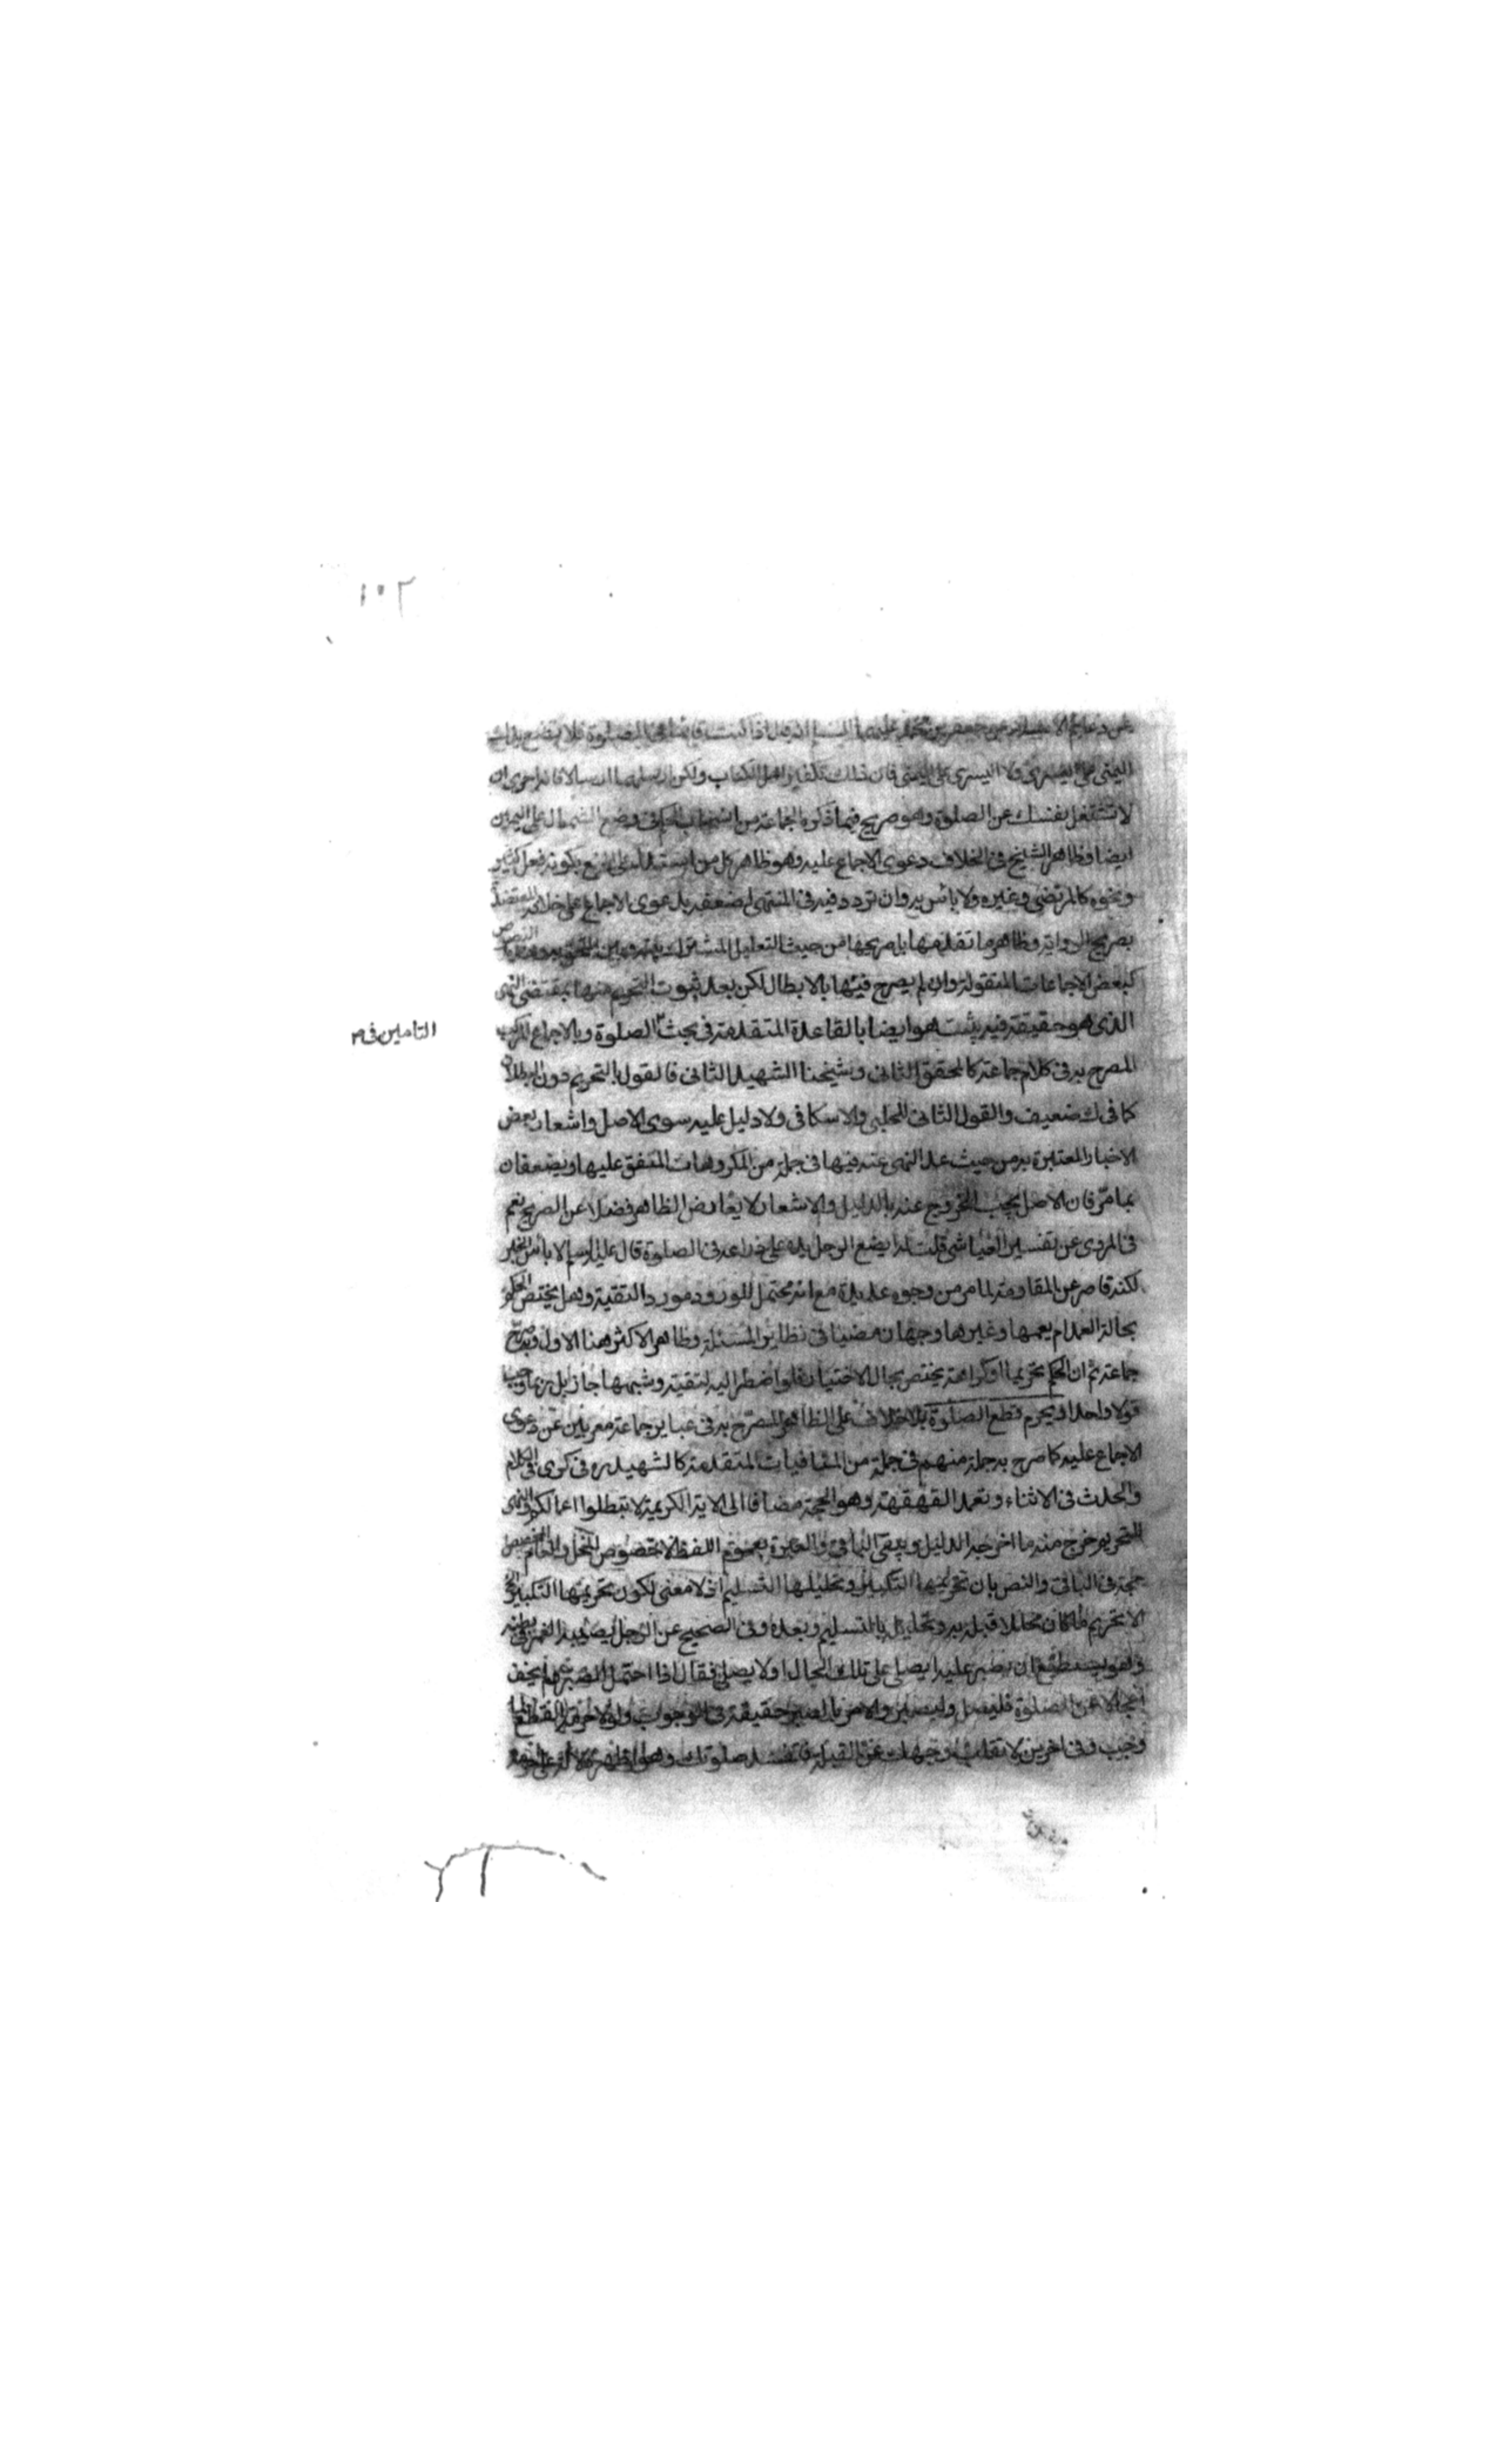 ١٠٢
عن دعائم الاسلام عن جعفر بن محمد عليهما السلام انه قال اذا كنت قائما في الصلوة فلا تضع يدك
اليمنى على اليسرى ولا اليسرى على اليمنى فان ذلك تكفير اهل الكتاب ولكن ارسلهما ارسالا فانه احرى ان
لا تشتغل نفسك عن الصلوة وهو صريح فيما ذكره الجماعة من انسحاب الحكم في وضع الشمال على اليمين
ايضا وظاهر الشيخ في الخلاف دعوى الاجماع عليه وهو ظاهر كل من استدل على المنع بكونه فعل كثير
ونحوه كالمرتضى وغيره ولا بأس به وان تردد فيه في المنتهى لضعفه بدعوى الاجماع على خلافه المعتضدة
بصريح الرواية وظاهر ما تقدمها بل صريحها من حيث التعليل المشترك بينه وبين
كبعض الاجماعات المنقولة وان لم يصرح فيها بالابطال لكن بعد ثبوت التحريم منها بمقتضى النهى
الذى هو حقيقة فيه يثبت هو ايضا بالقاعدة المتقدمة فى بحث الصلوة وبالاجماع المركب
التامين فى
المصرح به فى كلام جماعة كالمحقق الثانى وشيخنا الشهيد الثانى فالقول بالتحريم دون البطلان
كما فى ك ضعيف والقول الثانى للحلبى والاسكافى ولا دليل عليه سوى الاصل واشعار بعض
الاخبار المعتبرة به من حيث عد النهى عنه فيها فى جملة من المكروهات المتفق عليها ويضعفان
بما مر فان الاصل يجب الخروج عنه بالدليل والاشعار لا يعارض الظاهر فضلا عن الصريح نعم
فى المروى عن تفسير العياشى قلت له ايضع الرجل يده على ذراعه فى الصلوة قال عليه السلم لا بأس الخبر
لكنه قاصر عن المقاومة لما مر من وجوه عديدة مع انه محتمل للورود مورد التقية وهل يختص الحكم
بحالة العمد ام يعمها وغيرها وجهان مضيا فى نظاير المسئلة وظاهر الاكثر هنا الاول وبه صرح
جماعة ثم ان الحكم تحريما او كراهة يختص بحال الاختيار فلو اضطر اليه لتقية وشبهها جاز بل ربما وجب
قولا واحدا ويحرم قطع الصلوة بلا خلاف على الظاهر المصرح به فى عباير جماعة معربين عن دعوى
الاجماع عليه كما صرح به جملة منهم فى جملة من المنافيات المتقدمة كالشهيد ره فى كرى فى الكلام
والحدث فى الاثناء وتعمد القهقهة وهو الحجة مضافا الى الاية الكريمة لا تبطلوا اعمالكم والنهى
للتحريم خرج منه ما اخرجه الدليل ويبقى الباقى والعبرة بعموم اللفظ لا بخصوص المحل والعام المخصص
حجة فى الباقى والنص بان تحريمها التكبير وتحليلها التسليم اذ لا معنى لكون تحريمها التكبير
الا تحريم ما كان محللا قبله به وتحليله بالتسليم وبعده وفى الصحيح عن الرجل يصيبه الغمز فى بطنه
وهو يستطيع ان يصبر عليه ايصلى على تلك الحال او لا يصلى فقال اذا احتمل الصبر ولم يخف
اعجالا عن الصلوة فليصل وليصبر والامر بالصبر حقيقة فى الوجوب ولولا حرمة القطع لما
وجب وفى اخرين لا تقلب وجهك عن القبلة فتفسد صلوتك